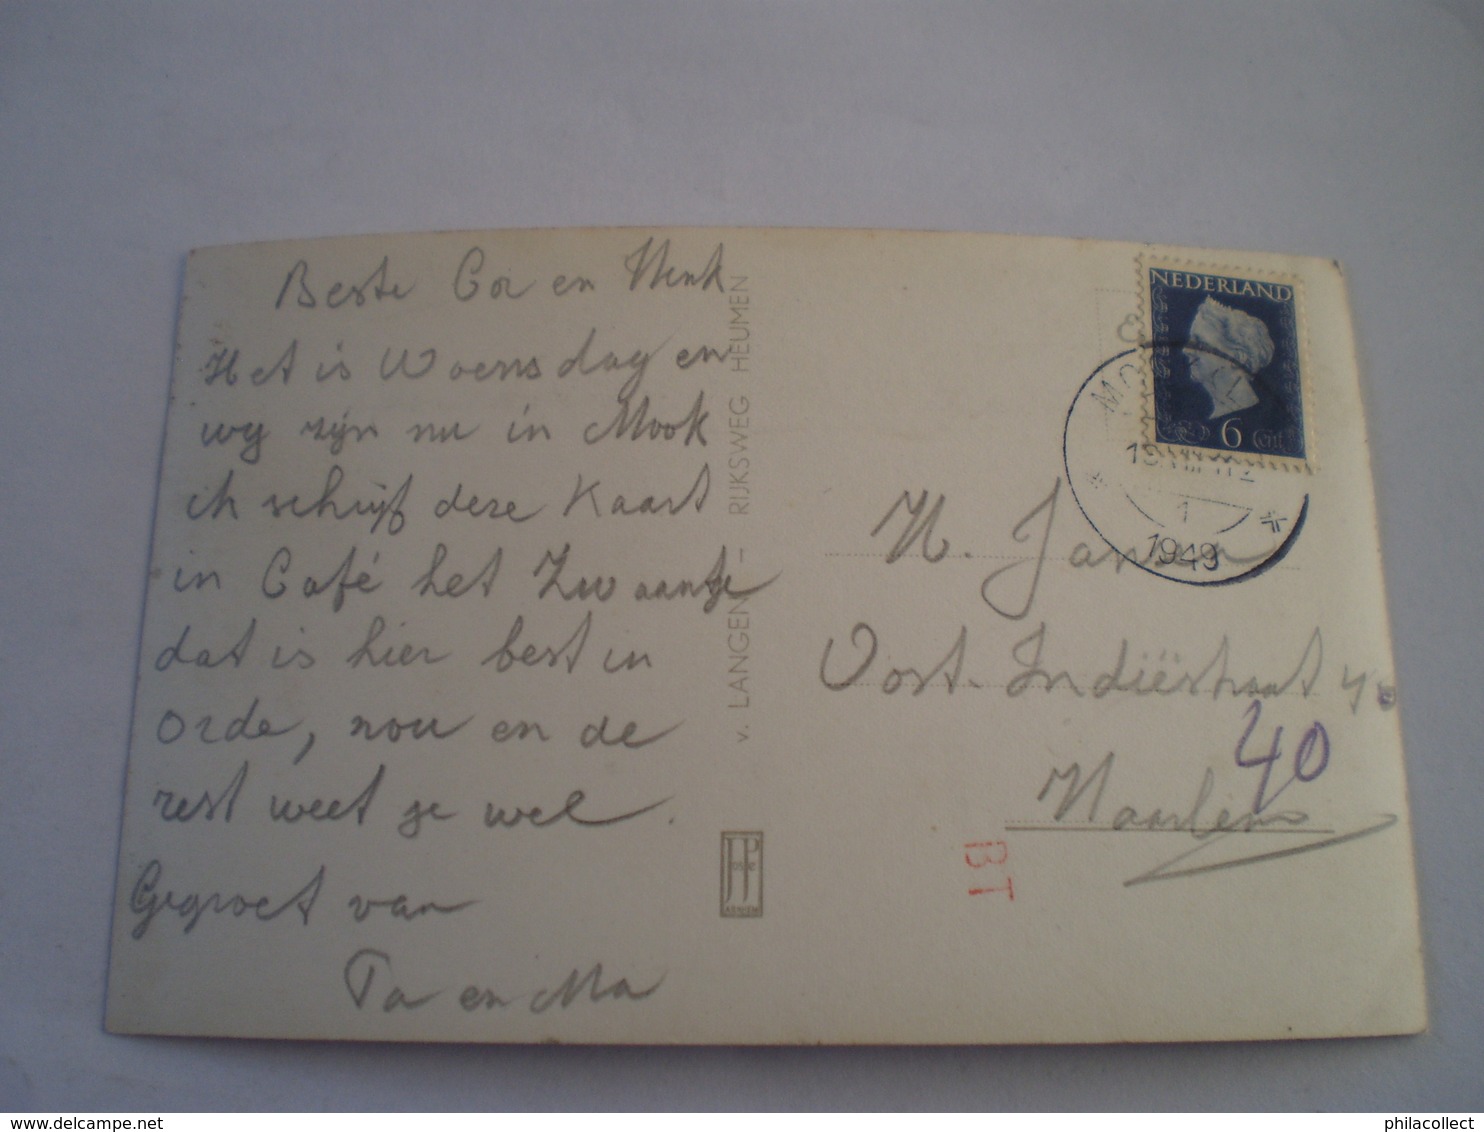 Beste Cor en Henk
Het is Woensdag en
wij zijn nu in Mook
ik schrijf deze Kaart
in Café het Zwaantje
dat is hier best in
orde, nou en de
rest weet je wel.
Gegroet van
Pa en Ma
v. LANGEN – RIJKSWEG HEUMEN
JosPe
ARNHEM
NEDERLAND
6 cent
1
1949
H. Jansen
Oost-Indiëstraat 40
40
Haarlem
BT
philacollect